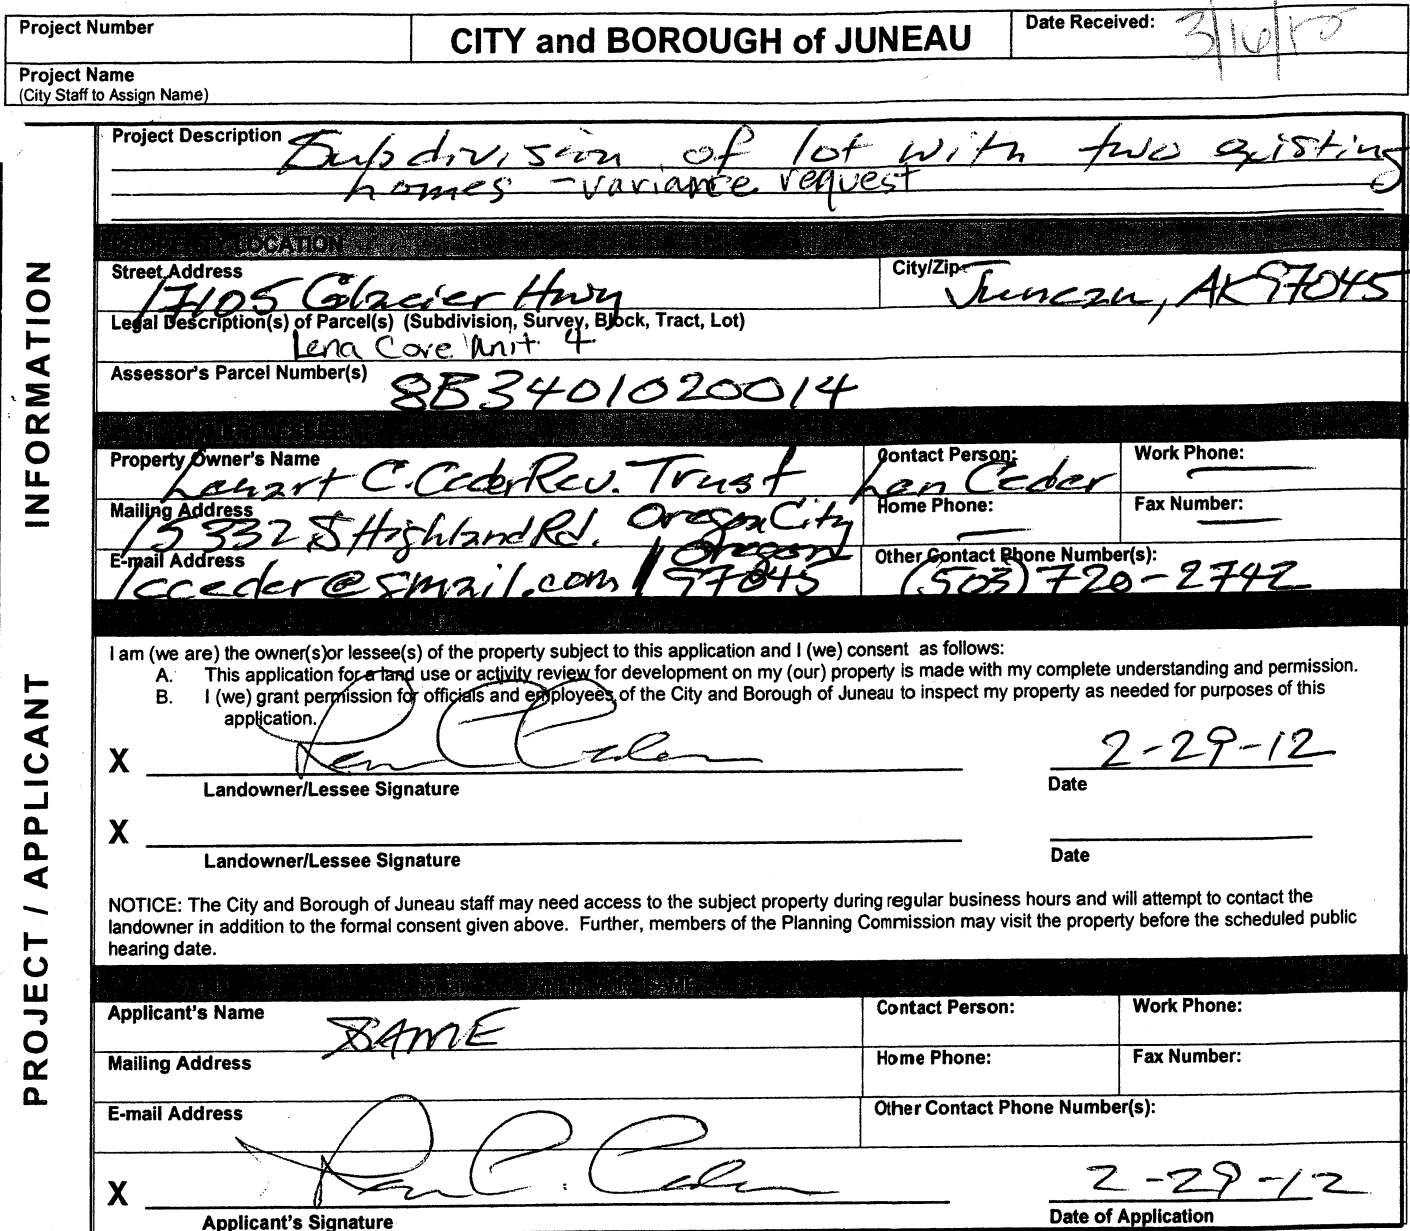 Project Number
CITY and BOROUGH of JUNEAU
Date Received:
Project Name
(City Staff to Assign Name)
Project Description
Subdivision of lot with two existing
homes - variance request
PROPERTY LOCATION
Street Address
17105 Glacier Hwy
City/Zip
Juneau, AK 97045
Legal Description(s) of Parcel(s) (Subdivision, Survey, Block, Tract, Lot)
Lena Cove Unit 4
Assessor's Parcel Number(s)
8B3401020014
Property Owner's Name
Lenart C. Ceder Rev. Trust
Contact Person:
Len Ceder
Work Phone:
Mailing Address
15332 S Highland Rd. Oregon City
Oregon
97045
Home Phone:
Fax Number:
E-mail Address
lcceder@gmail.com
Other Contact Phone Number(s):
(503) 720-2742
I am (we are) the owner(s)or lessee(s) of the property subject to this application and I (we) consent as follows:
A. This application for a land use or activity review for development on my (our) property is made with my complete understanding and permission.
B. I (we) grant permission for officials and employees of the City and Borough of Juneau to inspect my property as needed for purposes of this
application.
X
2-29-12
Landowner/Lessee Signature
Date
X
Landowner/Lessee Signature
Date
NOTICE: The City and Borough of Juneau staff may need access to the subject property during regular business hours and will attempt to contact the
landowner in addition to the formal consent given above. Further, members of the Planning Commission may visit the property before the scheduled public
hearing date.
Applicant's Name
SAME
Contact Person:
Work Phone:
Mailing Address
Home Phone:
Fax Number:
E-mail Address
Other Contact Phone Number(s):
X
2-29-12
Applicant's Signature
Date of Application
PROJECT / APPLICANT INFORMATION